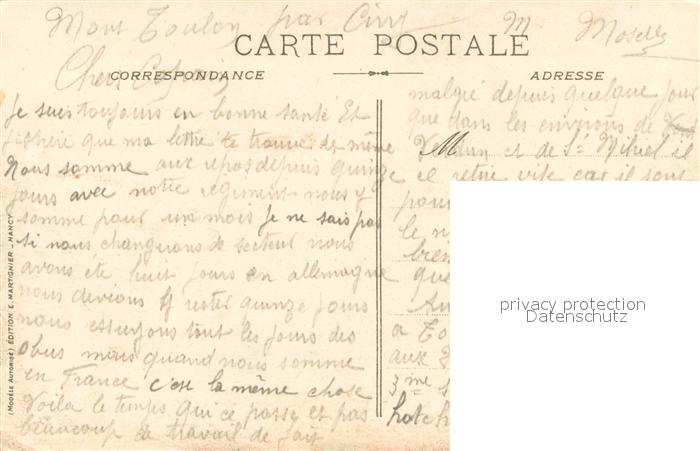 Mont Toulon par Cirey M Moselle
CARTE POSTALE
CORRESPONDANCE
ADRESSE
Chers
Je suis toujours en bonne santé Et
J'éspére que ma lettre te trouve de même
Nous somme aux repos depuis quinze
jours avec notre regiment nous y
somme pour un mois Je ne sais pas
si nous changerons de secteur nous
avons été huit jours en allemagne
nous devions y rester quinze jours
nous essuyons tout les jours des
obus mais quand nous somme
en France c'est la même chose
Voila le temps qui ce passe et pas
beaucoup de travail de fait
malgré depuis quelque jour
que dans les environs de
Verdun et de St Mihiel il
ce retire vite car il sont
pour
le
bien
que
a
aux
3me
hotch
(MODÈLE AUTORISÉ) ÉDITION E. MARTIGNIER - NANCY
privacy protection
Datenschutz